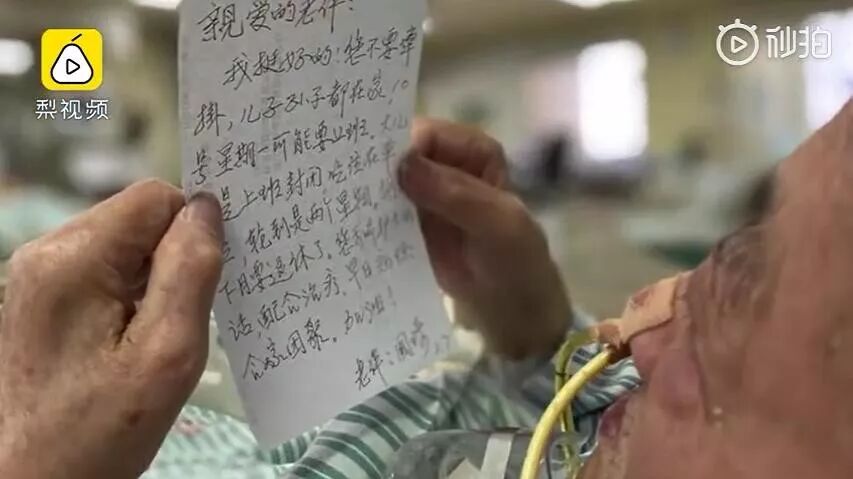 梨视频
秒拍
亲爱的老伴:
我挺好的,您不要牵
掛,儿子孙子都在家,10
号星期一可能要上班。大儿
是上班封闭,吃住在单
轮到是两个星期。
下月要退休了。您
话,配合治疗,早日
合家团聚。加油!
老伴: